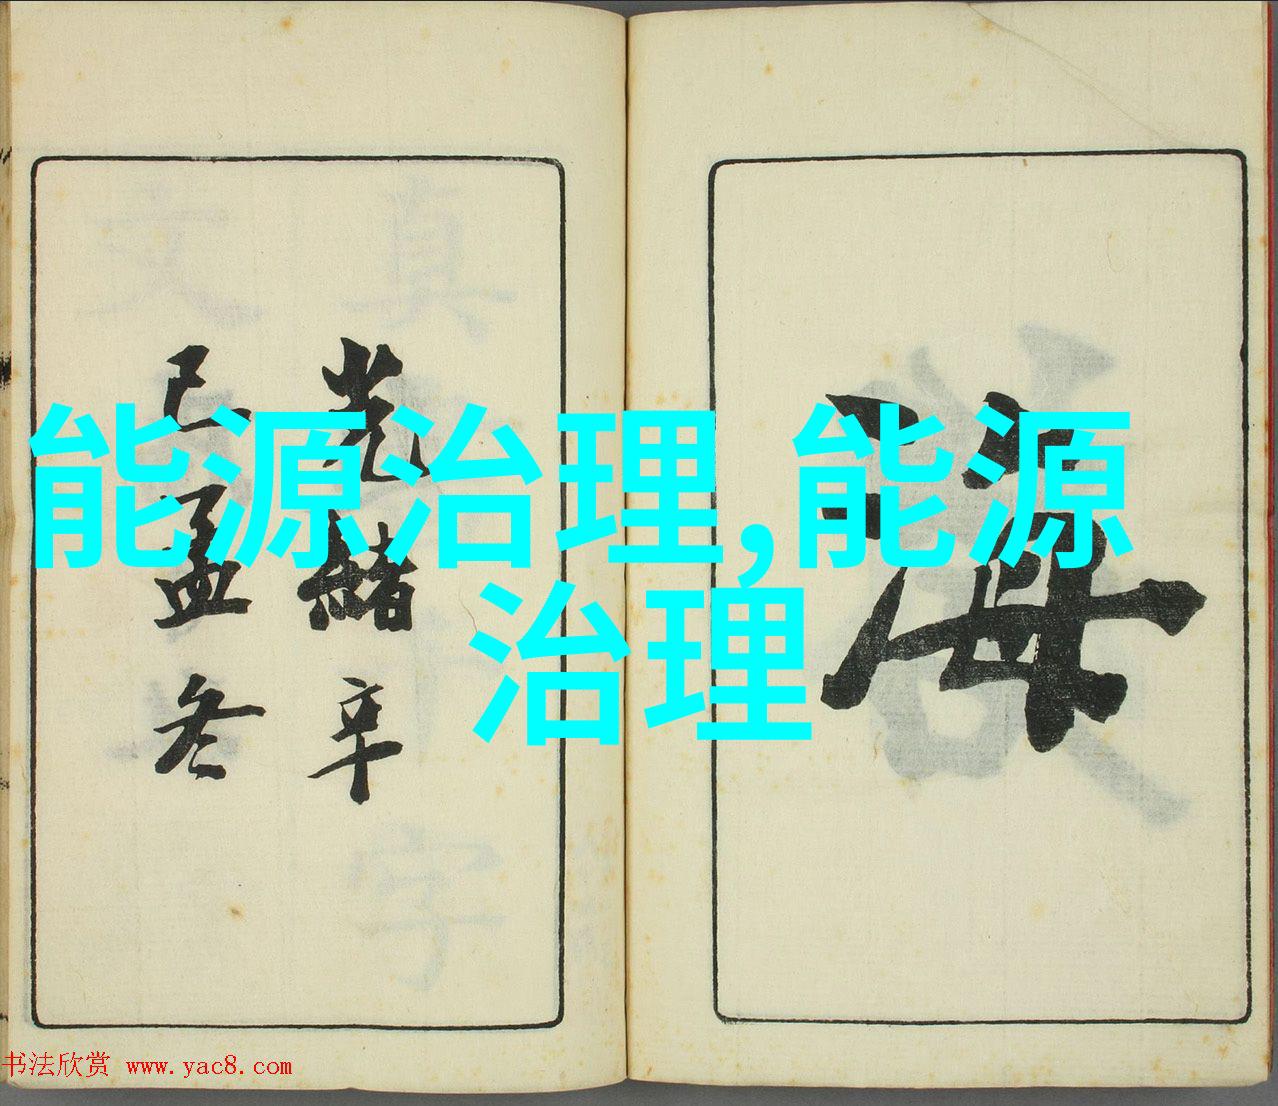 海
光緒辛
巳孟冬
能源治理,能源
治理
书法欣赏 www.yac8.com